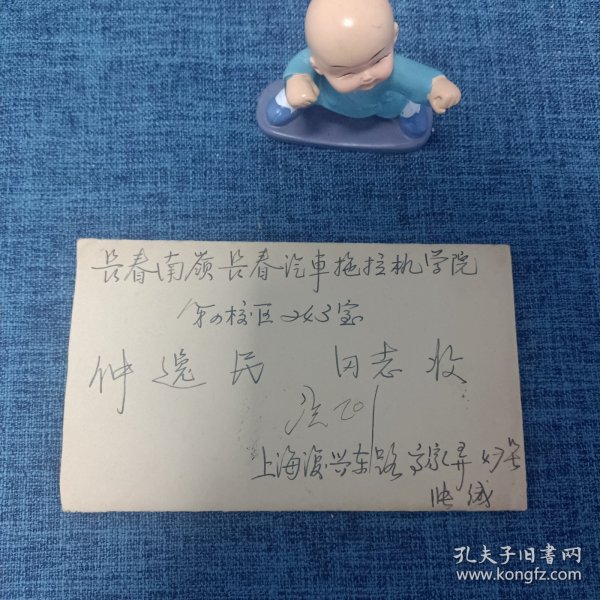 長春南嶺長春汽車拖拉机学院
第四校区243室
仲逸民 同志收
上海復兴东路 高家弄47号
孔夫子旧書网
www.kongfz.com